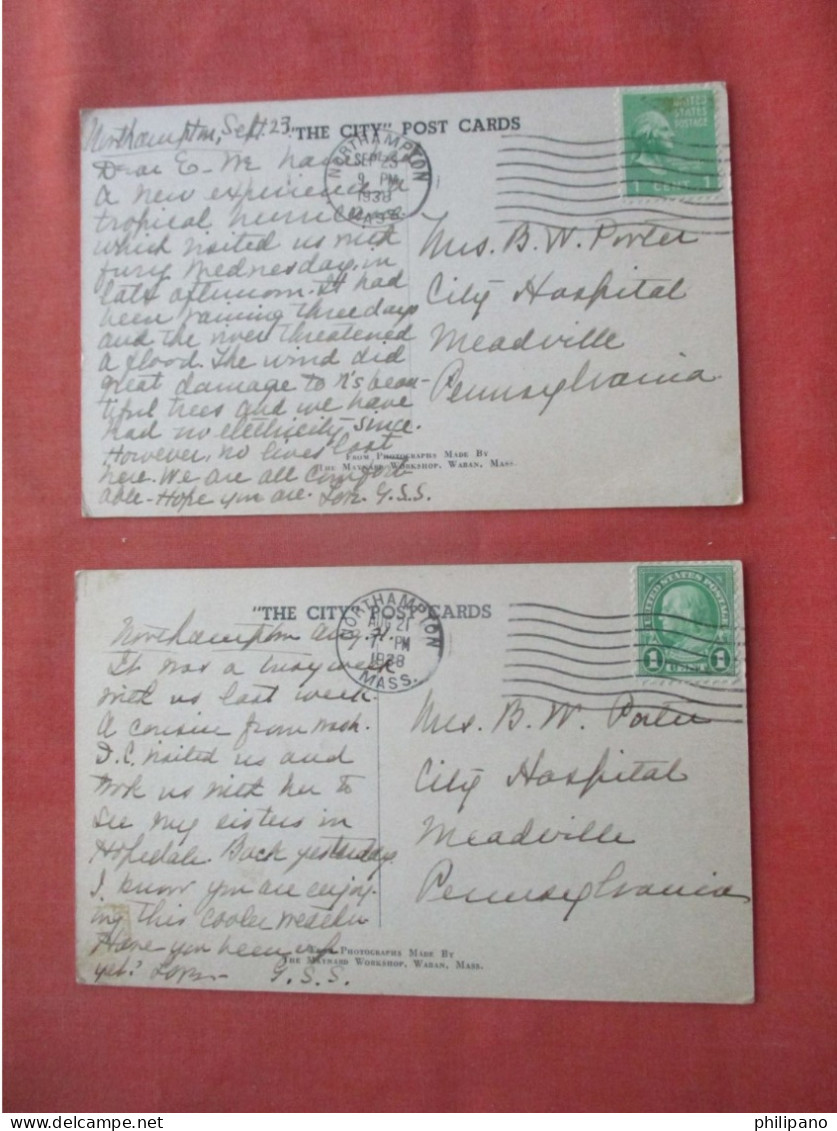 Northampton, Sept. 23.
"THE CITY" POST CARDS
NORTHAMPTON
SEP 23
9 PM
1938
MASS.
UNITED
STATES
POSTAGE
1 CENT 1
Dear E- We had
a new experience a
tropical hurricane
which visited us with
fury Wednesday, in
late afternoon. It had
been raining three days
and the river threatened
a flood. The wind did
great damage to N's beau-
tiful trees and we have
had no electricity since.
However, no lives lost
here. We are all comfort-
able- Hope you are. Lov. G.S.S.
Mrs. B. W. Porter
City Hospital
Meadville
Pennsylvania
FROM PHOTOGRAPHS MADE BY
THE MAYNARD WORKSHOP, WABAN, MASS.
"THE CITY" POST CARDS
NORTHAMPTON
AUG 21
PM
1938
MASS.
UNITED STATES POSTAGE
1 CENT 1
Northampton Aug. 21.
It was a busy week
with us last week.
A cousin from Wash.
D.C. visited us and
took us with her to
see my sisters in
Hopedale. Back yesterday.
I know you are enjoy-
ing this cooler weather
Have you been out
yet? G.S.S.
Mrs. B. W. Porter
City Hospital
Meadville
Pennsylvania
FROM PHOTOGRAPHS MADE BY
THE MAYNARD WORKSHOP, WABAN, MASS.
philipano